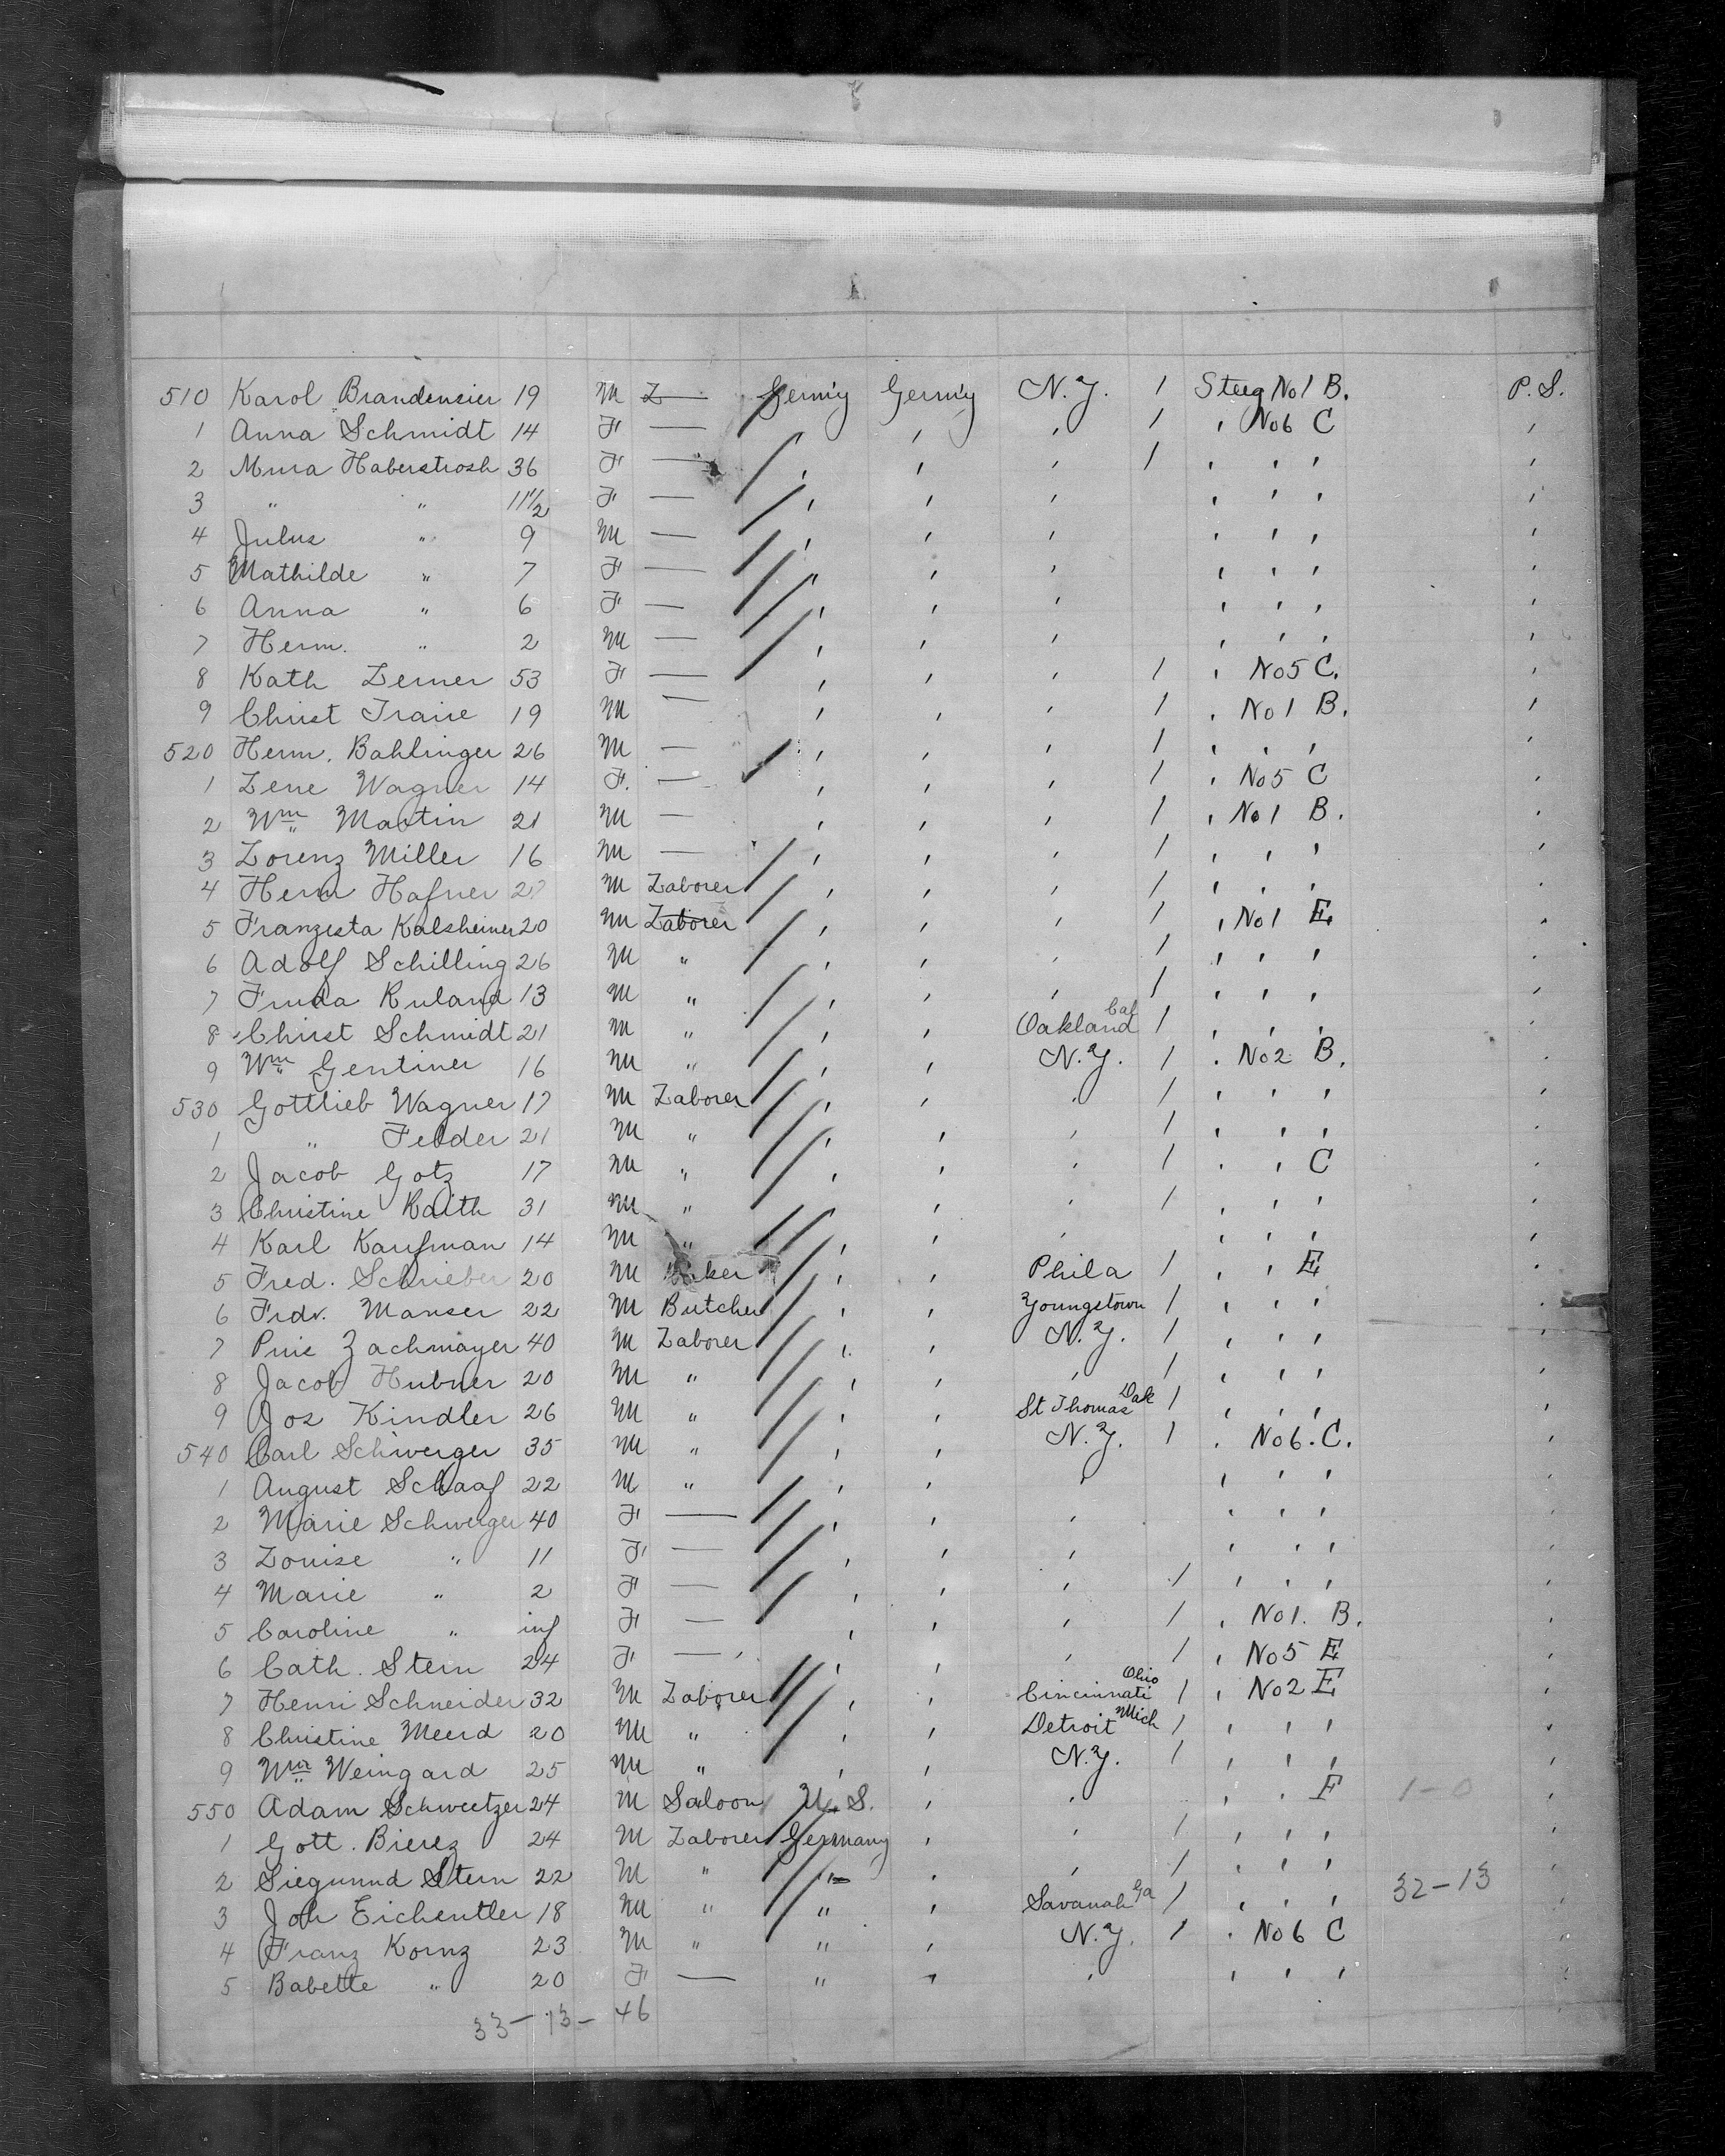 510 Karol Brandensier 19 M L — Germ'y Germ'y N.Y. 1 Steeg No 1 B. P.S.
1 Anna Schmidt 14 F — , , , 1 , No 6 C ,
2 Mina Haberstrosh 36 F — , , , 1 , , , ,
3 " " 11 1/2 F — , , , , , , ,
4 Julus " 9 M — , , , , , , ,
5 Mathilde " 7 F — , , , , , , ,
6 Anna " 6 F — , , , , , , ,
7 Herm. " 2 M — , , , , , , ,
8 Kath Lerner 53 F — , , , 1 , No 5 C. ,
9 Christ Traise 19 M — , , , 1 , No 1 B. ,
520 Herm. Bahlinger 26 M — , , , 1 , , , ,
1 Lene Wagner 14 F. — , , , 1 , No 5 C ,
2 Wm Martin 21 M — , , , 1 , No 1 B. ,
3 Lorenz Miller 16 M — , , , 1 , , , ,
4 Herm Hafner 27 M Laborer , , , 1 , , , ,
5 Franzista Kalsheimer 20 M Laborer , , , 1 , No 1 E ,
6 Adolf Schilling 26 M " , , , 1 , , , ,
7 Fruda Ruland 13 M " , , , 1 , , , ,
8 Christ Schmidt 21 M " , , Oakland Cal 1 , , , ,
9 Wm Gentiner 16 M " , , N.Y. 1 , No 2 B. ,
530 Gottlieb Wagner 17 M Laborer , , , 1 , , , ,
1 " Felder 21 M " , , , 1 , , , ,
2 Jacob Gotz 17 M " , , , 1 , , C ,
3 Christine Raith 31 M " , , , 1 , , , ,
4 Karl Kaufman 14 M " , , , , , , ,
5 Fred. Schrieber 20 M Baker , , Phila 1 , , E ,
6 Frdr. Manser 22 M Butcher , , Youngstown 1 , , , ,
7 Pius Zachmayer 40 M Laborer , , N.Y. 1 , , , ,
8 Jacob Hubner 20 M " , , , 1 , , , ,
9 Jos Kindler 26 M " , , St Thomas Dak 1 , , , ,
540 Carl Schwerger 35 M " , , N.Y. 1 , No 6. C. ,
1 August Schaaf 22 M " , , , , , , ,
2 Marie Schwerger 40 F — , , , , , , ,
3 Louise " 11 F — , , , , , , ,
4 Marie " 2 F — , , , 1 , , , ,
5 Caroline " inf F — , , , 1 , No 1. B. ,
6 Cath. Stern 24 F — , , , 1 , No 5 E ,
7 Henri Schneider 32 M Laborer , , Cincinnati Ohio 1 , No 2 E ,
8 Christine Meerd 20 M " , , Detroit Mich 1 , , , ,
9 Wm Weingard 25 M " , , N.Y. 1 , , , ,
550 Adam Schweetzer 24 M Saloon U.S. , , , , F 1-0 ,
1 Gott. Bierez 24 M Laborer Germany , , 1 , , , ,
2 Siegmund Stern 22 M " " , , 1 , , , 32-13 ,
3 Joh Eichentler 18 M " " , Savanah Ga 1 , , , ,
4 Franz Kornz 23 M " " , N.Y. 1 , No 6 C ,
5 Babette " 20 F — " , , , , , ,
33-13- 46